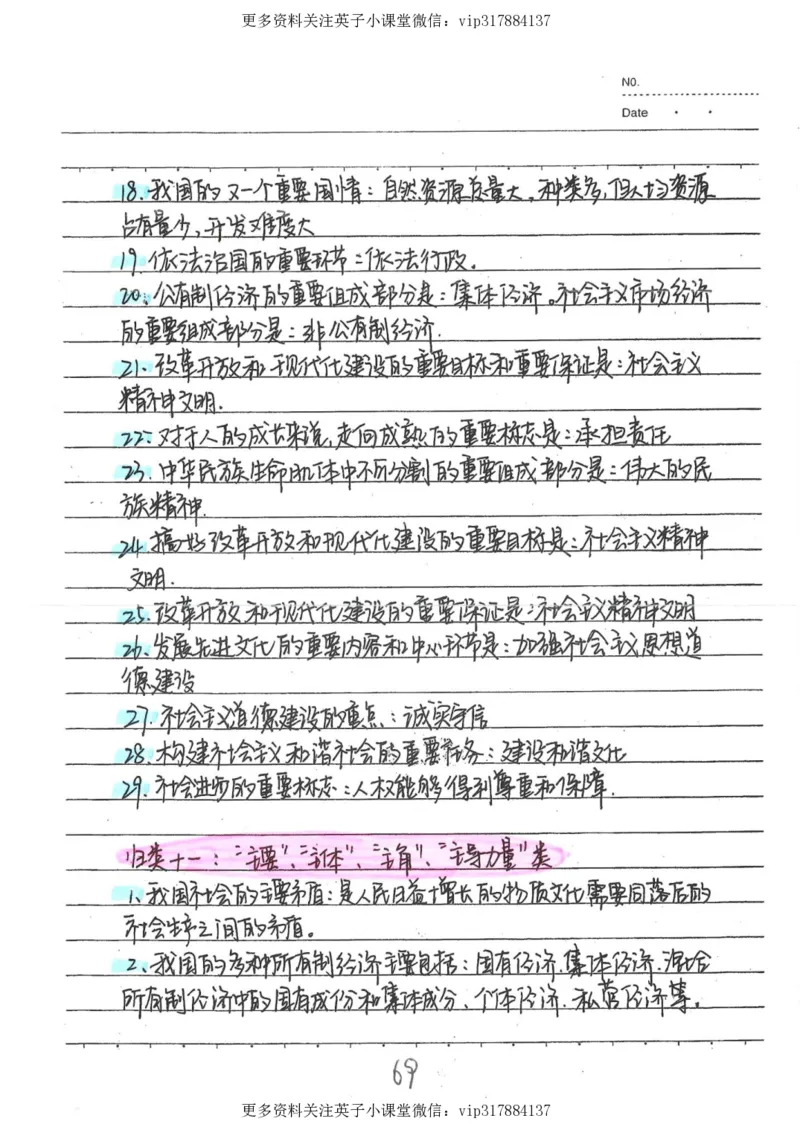 更多资料关注英子小课堂微信：vip317884137
NO.
Date
18.我国的又一个重要国情：自然资源总量大。种类多,但人均资源
占有量少,开发难度大
19.依法治国的重要环节：依法行政。
20.公有制经济的重要组成部分是：集体经济。社会主义市场经济
的重要组成部分是：非公有制经济.
21.改革开放和现代化建设的重要目标和重要保证是：社会主义
精神文明.
22.对于人的成长来说,走向成熟的重要标志是：承担责任
23.中华民族生命肌体中不可分割的重要组成部分是：伟大的民
族精神.
24.搞好改革开放和现代化建设的重要目标是：社会主义精神
文明.
25.改革开放和现代化建设的重要保证是：社会主义精神文明
26.发展先进文化的重要内容和中心环节是：加强社会主义思想道
德建设
27.社会主义道德建设的重点：诚实守信
28.构建社会主义和谐社会的重要任务：建设和谐文化
29.社会进步的重要标志：人权能够得到尊重和保障.
归类十一："主要"、"主体"、"主角"、"主导力量"类
1、我国社会的主要矛盾：是人民日益增长的物质文化需要同落后的
社会生产之间的矛盾。
2、我国的多种所有制经济主要包括：国有经济、集体经济、混合
所有制经济中的国有成份和集体成分、个体经济、私营经济等。
69
更多资料关注英子小课堂微信：vip317884137